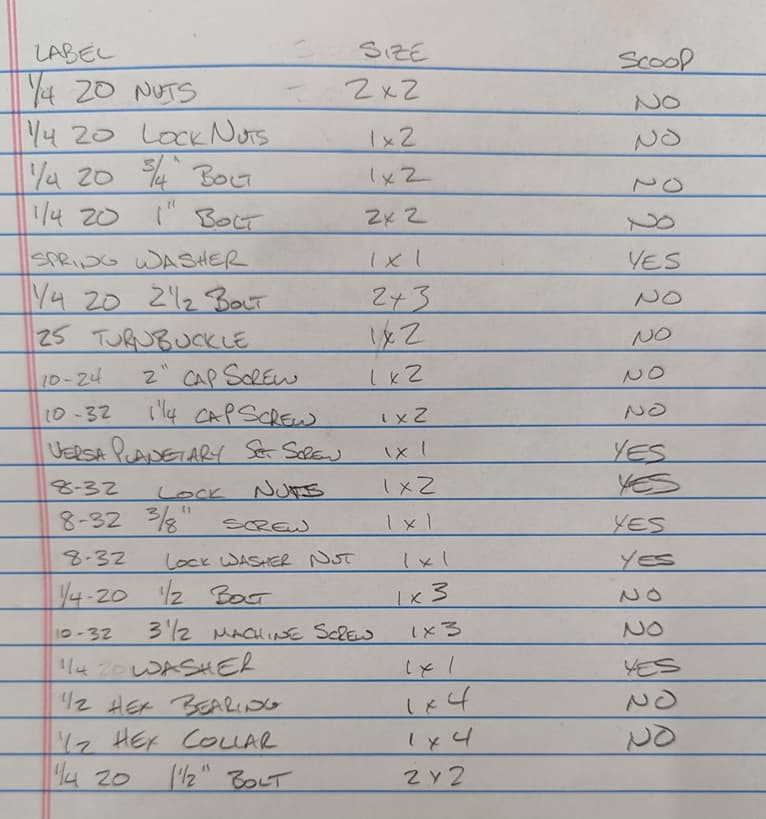 LABEL SIZE SCOOP
1/4 20 NUTS 2 x 2 NO
1/4 20 LOCK NUTS 1 x 2 NO
1/4 20 3/4" BOLT 1 x 2 NO
1/4 20 1" BOLT 2 x 2 NO
SPRING WASHER 1 x 1 YES
1/4 20 2 1/2 BOLT 2 x 3 NO
25 TURNBUCKLE 1 x 2 NO
10-24 2" CAP SCREW 1 x 2 NO
10-32 1 1/4 CAP SCREW 1 x 2 NO
VERSA PLANETARY SET SCREW 1 x 1 YES
8-32 LOCK NUTS 1 x 2 YES
8-32 3/8" SCREW 1 x 1 YES
8-32 LOCK WASHER NUT 1 x 1 YES
1/4-20 1/2 BOLT 1 x 3 NO
10-32 3 1/2 MACHINE SCREW 1 x 3 NO
1/4 WASHER 1 x 1 YES
1/2 HEX BEARING 1 x 4 NO
1/2 HEX COLLAR 1 x 4 NO
1/4 20 1 1/2" BOLT 2 x 2